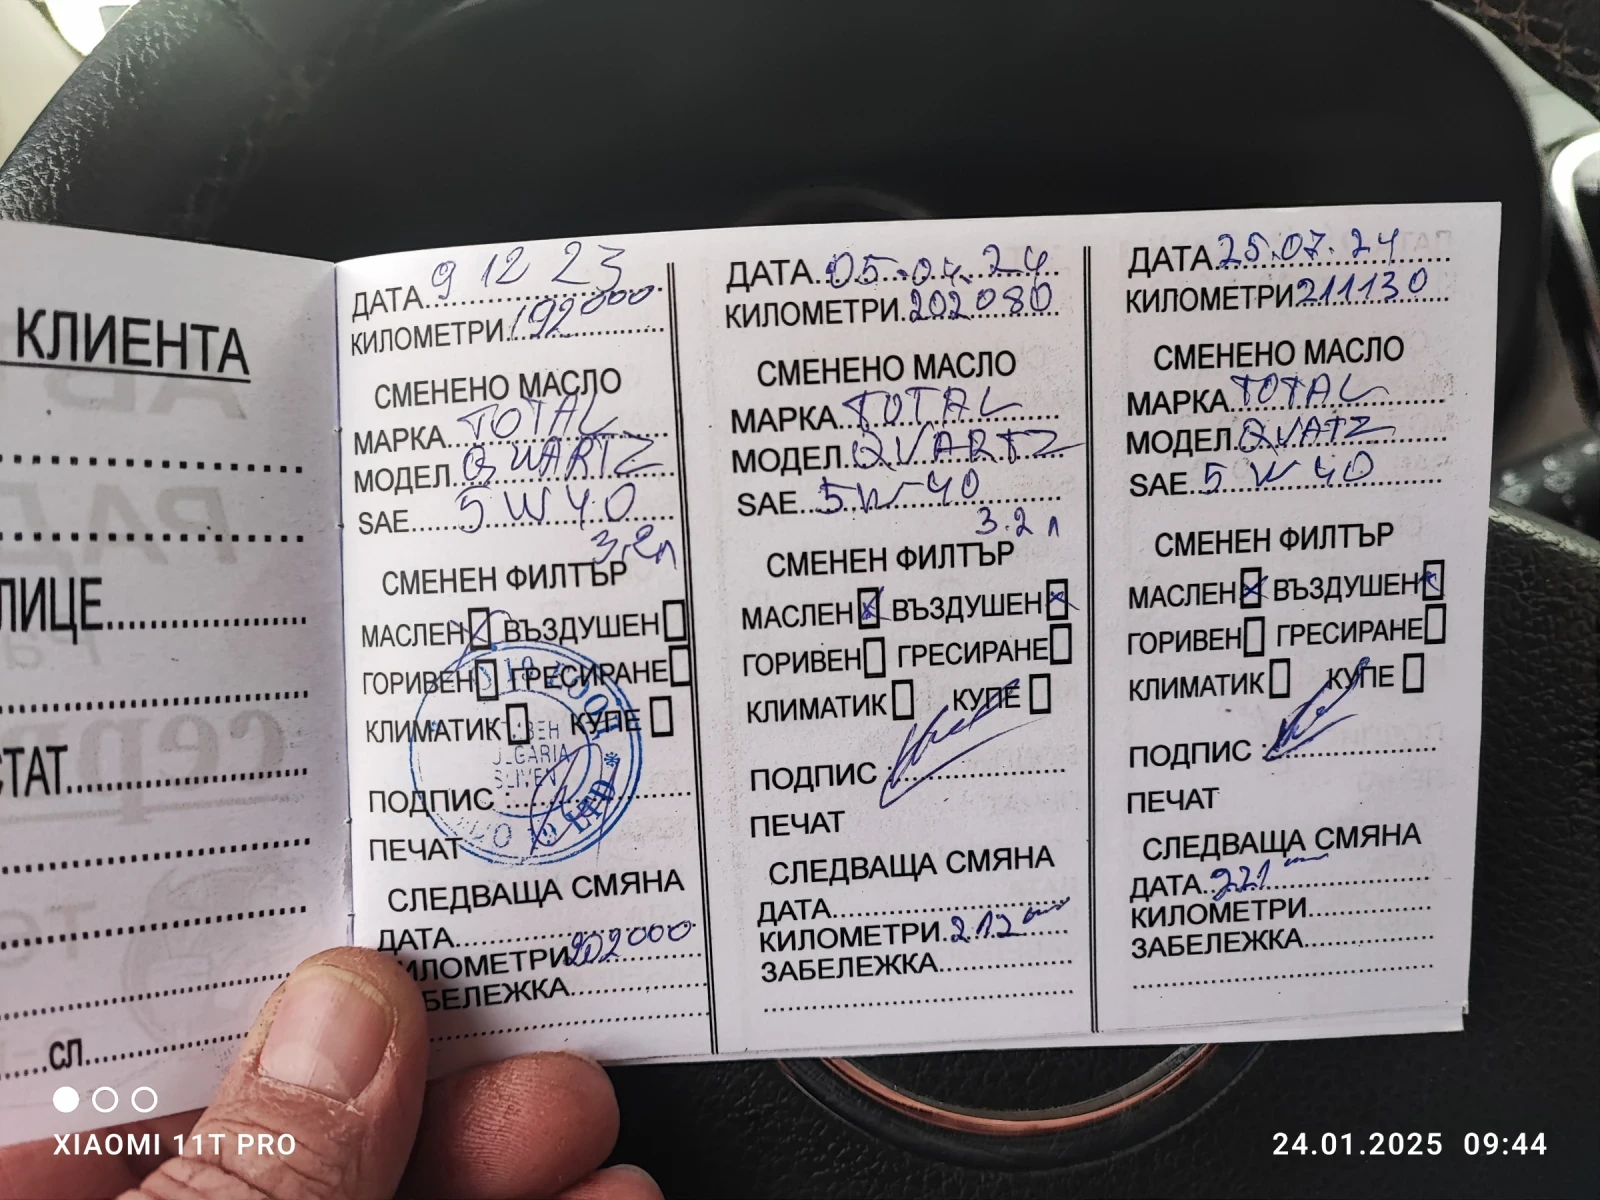 КЛИЕНТА
ЛИЦЕ
СТАТ
СЛ
ДАТА 9 12 23
КИЛОМЕТРИ 192000
СМЕНЕНО МАСЛО
МАРКА TOTAL
МОДЕЛ QUARTZ
SAE 5W40
3,2л
СМЕНЕН ФИЛТЪР
МАСЛЕН ВЪЗДУШЕН
ГОРИВЕН ГРЕСИРАНЕ
КЛИМАТИК КУПЕ
ПОДПИС
ПЕЧАТ
СЛЕДВАЩА СМЯНА
ДАТА
КИЛОМЕТРИ 202000
ЗАБЕЛЕЖКА
SLIVEN
LTD
ДАТА 05.04.24
КИЛОМЕТРИ 202080
СМЕНЕНО МАСЛО
МАРКА TOTAL
МОДЕЛ QVARTZ
SAE 5W-40
3.2 л
СМЕНЕН ФИЛТЪР
МАСЛЕН ВЪЗДУШЕН
ГОРИВЕН ГРЕСИРАНЕ
КЛИМАТИК КУПЕ
ПОДПИС
ПЕЧАТ
СЛЕДВАЩА СМЯНА
ДАТА
КИЛОМЕТРИ 212
ЗАБЕЛЕЖКА
ДАТА 25.07.24
КИЛОМЕТРИ 211130
СМЕНЕНО МАСЛО
МАРКА TOTAL
МОДЕЛ QVATZ
SAE 5W40
СМЕНЕН ФИЛТЪР
МАСЛЕН ВЪЗДУШЕН
ГОРИВЕН ГРЕСИРАНЕ
КЛИМАТИК КУПЕ
ПОДПИС
ПЕЧАТ
СЛЕДВАЩА СМЯНА
ДАТА 221
КИЛОМЕТРИ
ЗАБЕЛЕЖКА
XIAOMI 11T PRO
24.01.2025 09:44